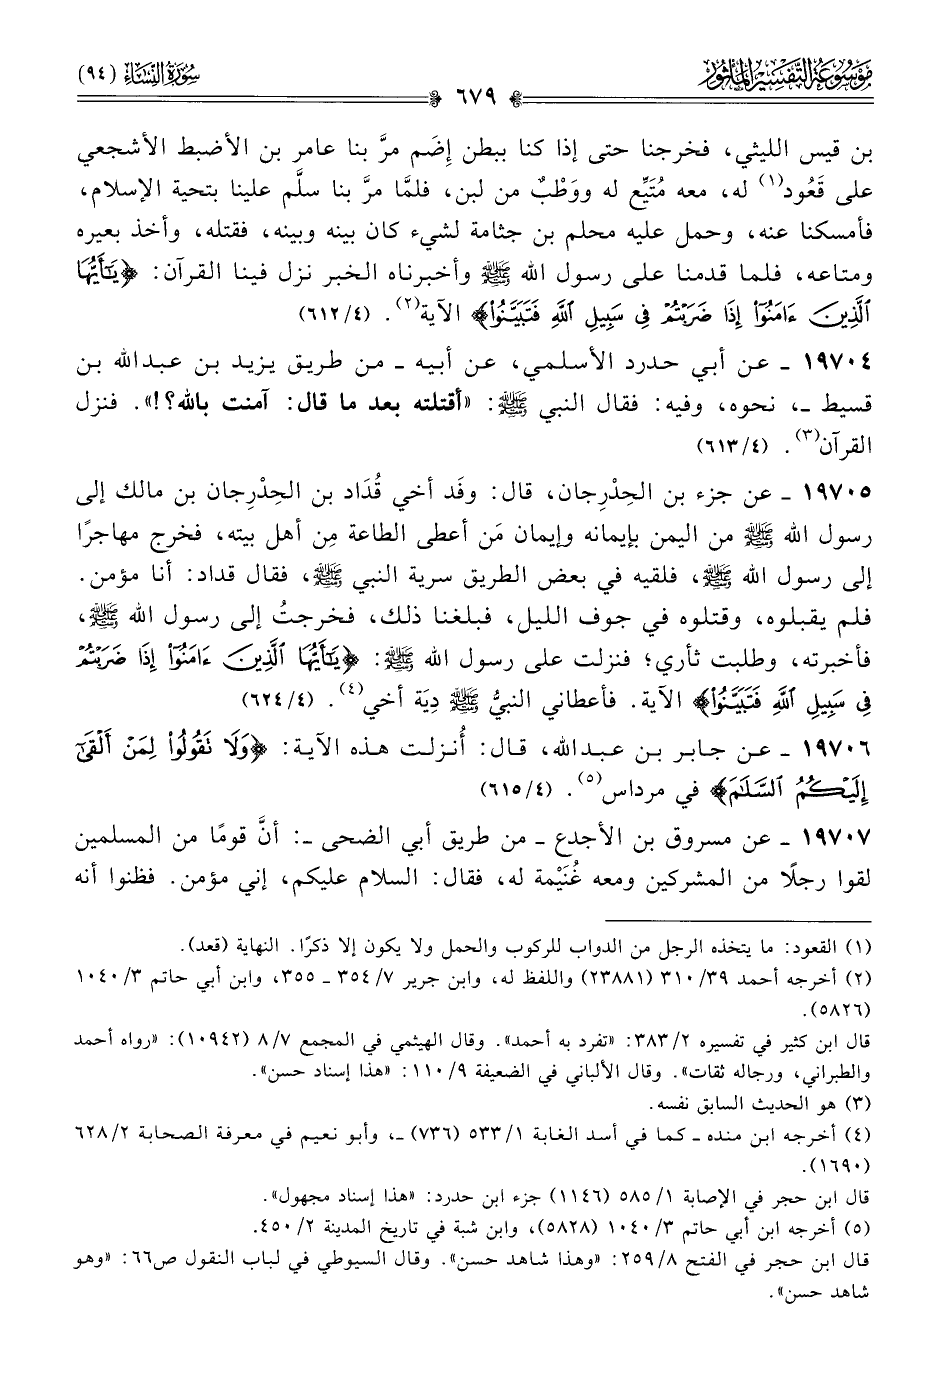 موسوعة التفسير المأثور
سورة النساء (٩٤)
٦٧٩
بن قيس الليثي، فخرجنا حتى إذا كنا ببطن إِضَم مرَّ بنا عامر بن الأضبط الأشجعي
على قَعُود(١) له، معه مُتَيِّع له ووَطْبٌ من لبن، فلمَّا مرَّ بنا سلَّم علينا بتحية الإسلام،
فأمسكنا عنه، وحمل عليه محلم بن جثامة لشيء كان بينه وبينه، فقتله، وأخذ بعيره
ومتاعه، فلما قدمنا على رسول الله ﷺ وأخبرناه الخبر نزل فينا القرآن: ﴿يَٰٓأَيُّهَا
ٱلَّذِينَ ءَامَنُوٓا۟ إِذَا ضَرَبْتُمْ فِى سَبِيلِ ٱللَّهِ فَتَبَيَّنُوا۟﴾ الآية(٢). (٤/ ٦١٢)
١٩٧٠٤ ـ عن أبي حدرد الأسلمي، عن أبيه ـ من طريق يزيد بن عبدالله بن
قسيط ـ، نحوه، وفيه: فقال النبي ﷺ: «أقتلته بعد ما قال: آمنت بالله؟!». فنزل
القرآن(٣). (٤/ ٦١٣)
١٩٧٠٥ ـ عن جزء بن الحِدْرِجان، قال: وفَد أخي قُدَاد بن الحِدْرِجان بن مالك إلى
رسول الله ﷺ من اليمن بإيمانه وإيمان مَن أعطى الطاعة مِن أهل بيته، فخرج مهاجرًا
إلى رسول الله ﷺ، فلقيه في بعض الطريق سرية النبي ﷺ، فقال قداد: أنا مؤمن.
فلم يقبلوه، وقتلوه في جوف الليل، فبلغنا ذلك، فخرجتُ إلى رسول الله ﷺ،
فأخبرته، وطلبت ثأري؛ فنزلت على رسول الله ﷺ: ﴿يَٰٓأَيُّهَا ٱلَّذِينَ ءَامَنُوٓا۟ إِذَا ضَرَبْتُمْ
فِى سَبِيلِ ٱللَّهِ فَتَبَيَّنُوا۟﴾ الآية. فأعطاني النبيُّ ﷺ دِيَة أخي(٤). (٤/ ٦٢٤)
١٩٧٠٦ ـ عن جابر بن عبدالله، قال: أُنزلت هذه الآية: ﴿وَلَا تَقُولُوا۟ لِمَنْ أَلْقَىٰٓ
إِلَيْكُمُ ٱلسَّلَٰمَ﴾ في مرداس(٥). (٤/ ٦١٥)
١٩٧٠٧ ـ عن مسروق بن الأجدع ـ من طريق أبي الضحى ـ: أنَّ قومًا من المسلمين
لقوا رجلًا من المشركين ومعه غُنَيْمة له، فقال: السلام عليكم، إني مؤمن. فظنوا أنه
(١) القعود: ما يتخذه الرجل من الدواب للركوب والحمل ولا يكون إلا ذكرًا. النهاية (قعد).
(٢) أخرجه أحمد ٣٩/ ٣١٠ (٢٣٨٨١) واللفظ له، وابن جرير ٧/ ٣٥٤ ـ ٣٥٥، وابن أبي حاتم ٣/ ١٠٤٠
(٥٨٢٦).
قال ابن كثير في تفسيره ٢/ ٣٨٣: «تفرد به أحمد». وقال الهيثمي في المجمع ٧/ ٨ (١٠٩٤٢): «رواه أحمد
والطبراني، ورجاله ثقات». وقال الألباني في الضعيفة ٩/ ١١٠: «هذا إسناد حسن».
(٣) هو الحديث السابق نفسه.
(٤) أخرجه ابن منده ـ كما في أسد الغابة ١/ ٥٣٣ (٧٣٦) ـ، وأبو نعيم في معرفة الصحابة ٢/ ٦٢٨
(١٦٩٠).
قال ابن حجر في الإصابة ١/ ٥٨٥ (١١٤٦) جزء ابن حدرد: «هذا إسناد مجهول».
(٥) أخرجه ابن أبي حاتم ٣/ ١٠٤٠ (٥٨٢٨)، وابن شبة في تاريخ المدينة ٢/ ٤٥٠.
قال ابن حجر في الفتح ٨/ ٢٥٩: «وهذا شاهد حسن». وقال السيوطي في لباب النقول ص٦٦: «وهو
شاهد حسن».